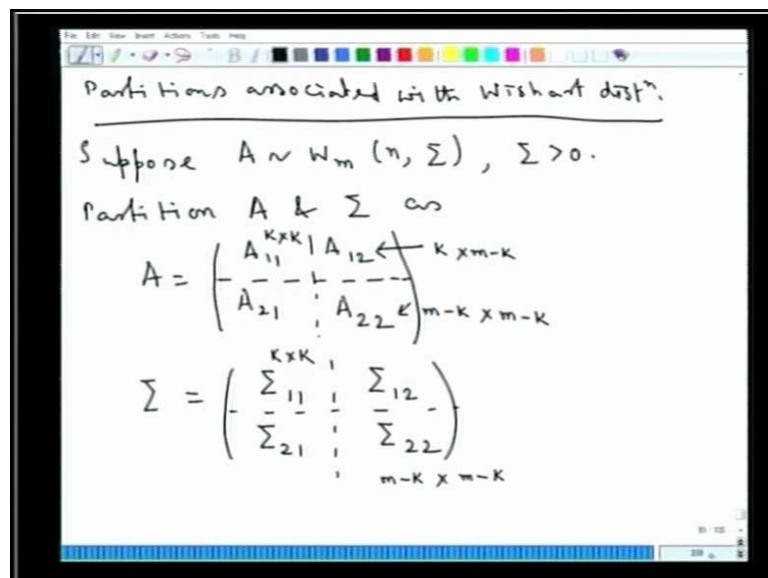 File Edit View Insert Actions Tools Help
Partitions associated with Wishart distⁿ.
Suppose A ~ Wₘ (n, Σ), Σ > 0.
Partition A & Σ as
A = ( A₁₁ K×K | A₁₂ ← K × m-K
A₂₁ | A₂₂ ) m-K × m-K
Σ = ( Σ₁₁ K×K | Σ₁₂
Σ₂₁ | Σ₂₂ )
m-K × m-K